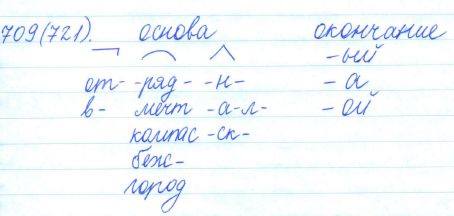 709(721). основа окончание
от- -ряд- -н- -ый
в- -мечт -а-л- -а
компас -ск- -ой
беж-
город